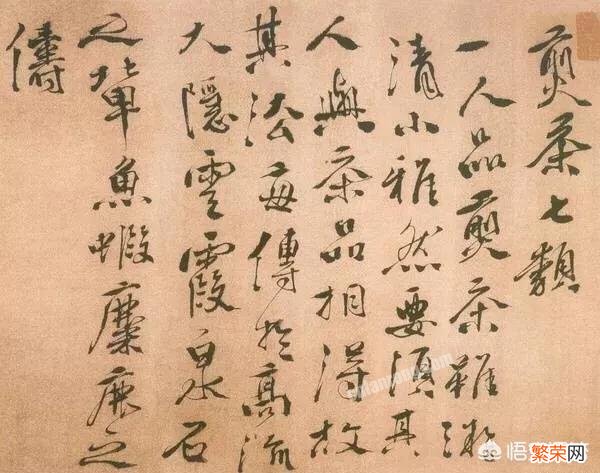 煎茶七類
一人品煎茶雖微
清小雅然要須其
人與茶品相得故
其法每傳於高流
大隱雲霞泉石
之輩魚蝦麋鹿之
儔
繁荣网